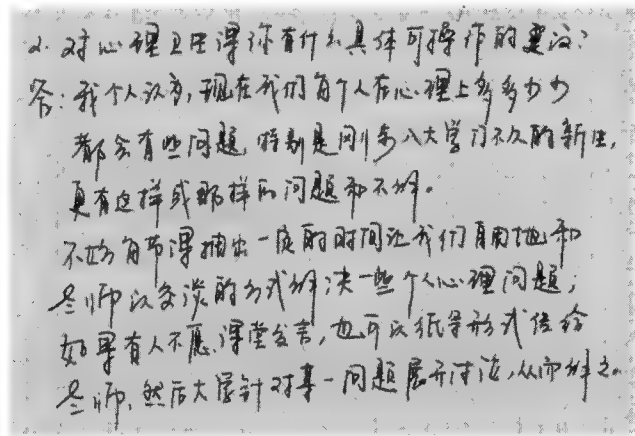 2. 对心理卫生课你有什么具体可操作的建议?
答:我个人认为,现在我们每个人在心理上多多少少
都会有些问题,特别是刚步入大学门不久的新生,
更有这样或那样的问题和不解。
不妨每节课抽出一定的时间让我们自由地和
老师以交谈的方式解决一些个人心理问题;
如果有人不愿课堂发言,也可以纸条形式传给
老师,然后大家针对某一问题展开讨论,从而解之。